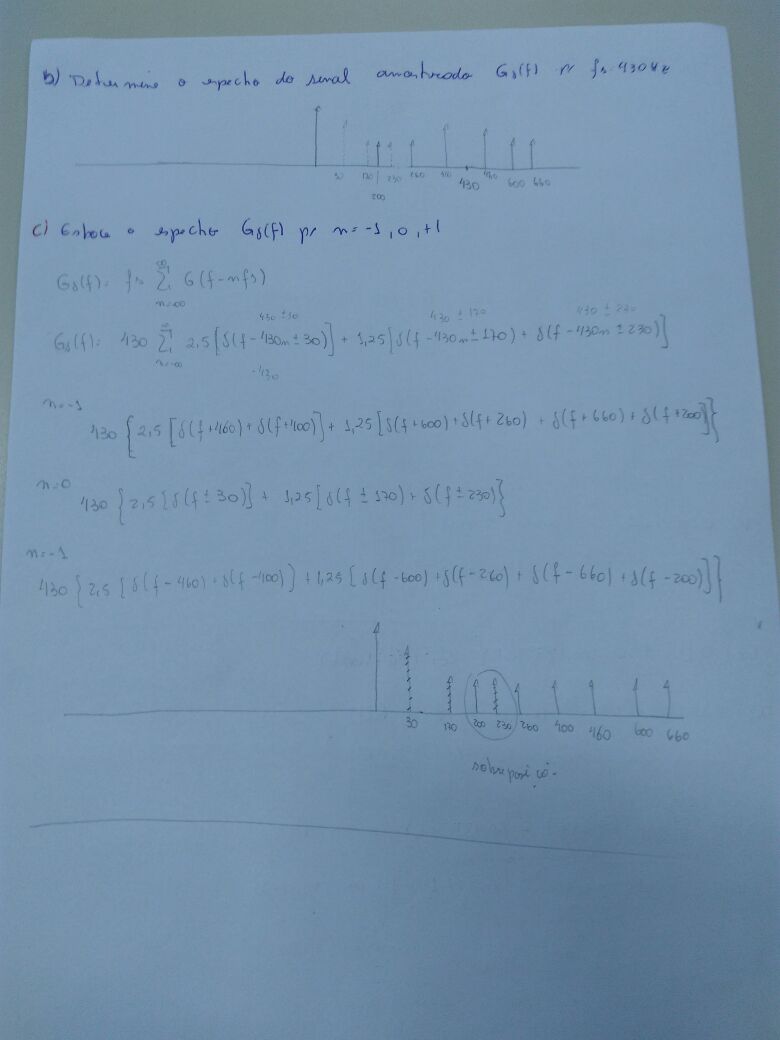 b) Determine o espectro do sinal amostrado Gδ(f) p/ fs 430Hz
30 170 230 260 400 430 460 600 660
200
c) Esboce o espectro Gδ(f) p/ n = -1, 0, +1
Gδ(f) = fs ∞ Σ n=-∞ G(f-nfs)
430 ± 30 430 ± 170 430 ± 230
Gδ(f) = 430 ∞ Σ n=-∞ 2,5[δ(f-430n ± 30)] + 1,25[δ(f-430n ± 170) + δ(f-430n ± 230)]
-430
n=-1
430 {2,5 [δ(f+460) + δ(f+400)] + 1,25 [δ(f+600) + δ(f+260) + δ(f+660) + δ(f+200)]}
n=0
430 {2,5 [δ(f ± 30)] + 1,25 [δ(f ± 170) + δ(f ± 230)}
n=-1
430 {2,5 [δ(f-460) + δ(f-400)] + 1,25 [δ(f-600) + δ(f-260) + δ(f-660) + δ(f-200)]}
30 170 200 230 260 400 460 600 660